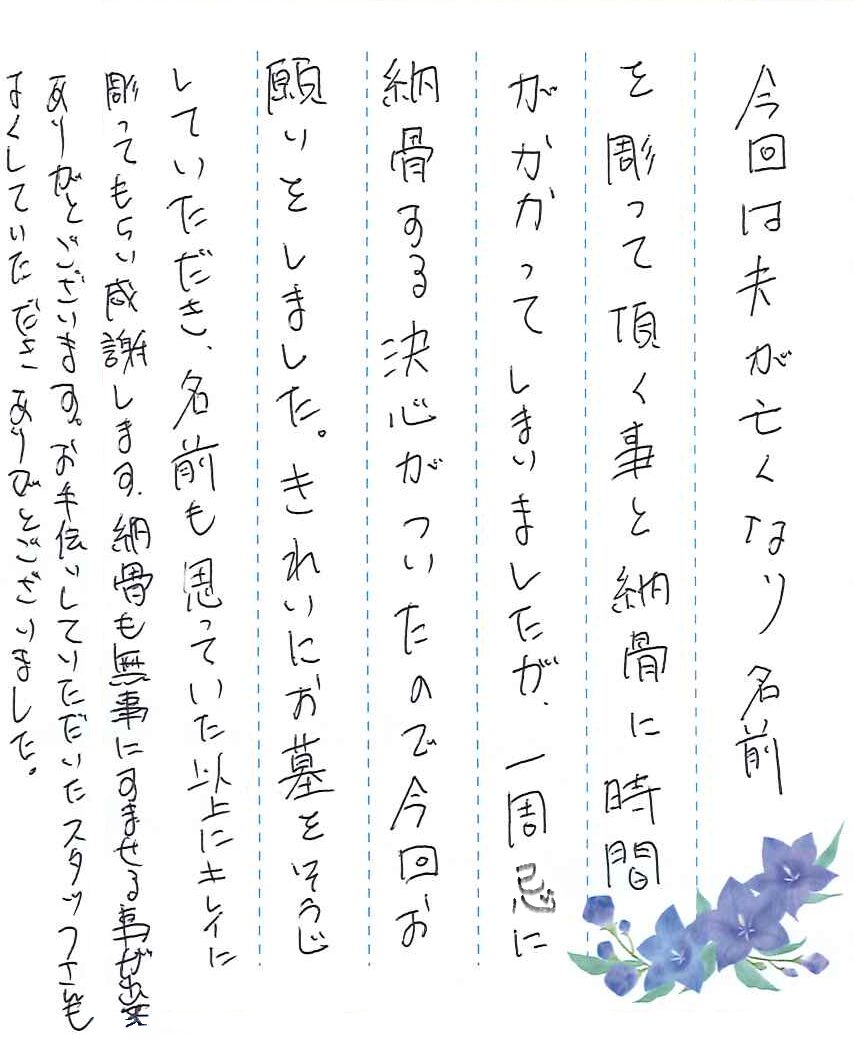 今回は夫が亡くなり名前
を彫って頂く事と納骨に時間
がかかってしまいましたが、一周忌に
納骨する決心がついたので今回お
願いをしました。きれいにお墓をそうじ
していただき、名前も思っていた以上にキレイに
彫ってもらい感謝します。納骨も無事にすませる事が出来
ありがとございます。お手伝いしていただいたスタッフさんも
よくしていただきありがとございました。